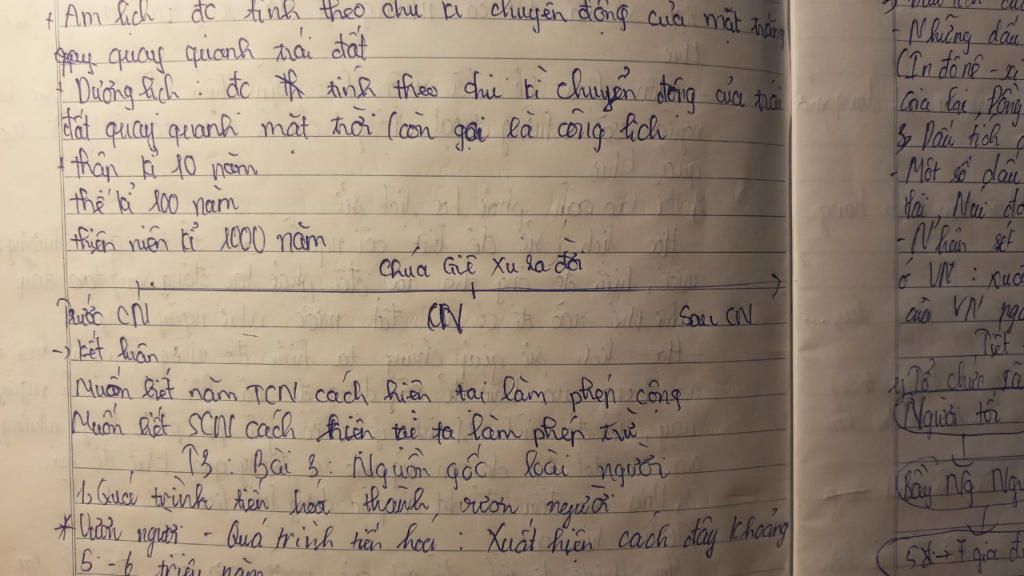 + Âm lịch : đc tính theo chu kì chuyển động của mặt trăng
quay quanh trái đất
- Dương lịch : đc tính theo chu kì chuyển động của trái
đất quay quanh mặt trời (còn gọi là công lịch
- thập kỉ 10 năm
thế kỉ 100 năm
thiên niên kỉ 1000 năm
Chúa Giê Xu ra đời
Trước CN CN Sau CN
-> kết luận
Muốn biết năm TCN cách hiện tại làm phép cộng
Muốn biết SCN cách hiện tại ta làm phép trừ
T3 : Bài 3 : Nguồn gốc loài người
1, Quá trình tiến hoá thành vượn người
* Vượn người - Quá trình tiến hoá : Xuất hiện cách đây khoảng
5 - 6 triệu năm
- Những dấu
(In đô nê - xi
Gia Lai, Đồng
3, Dấu tích
- Một số dấu
- Nhân
ở VN : xuất
của VN
Tiết
1, Tổ chức
Người tối
Bầy Ng Ngu
5 -> 7 gia đ